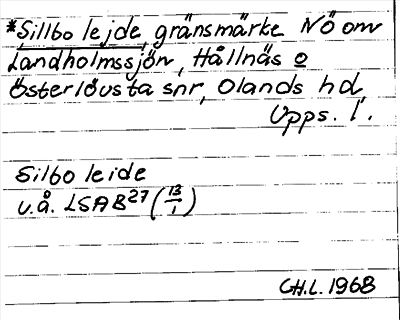 *Sillbo lejde, gränsmärke NÖ om
Landholmssjön, Hållnäs o
Österlövsta snr, Olands hd,
Upps. l.
Silbo leide
u.å. LSAB27 (13/1)
CH.L. 1968